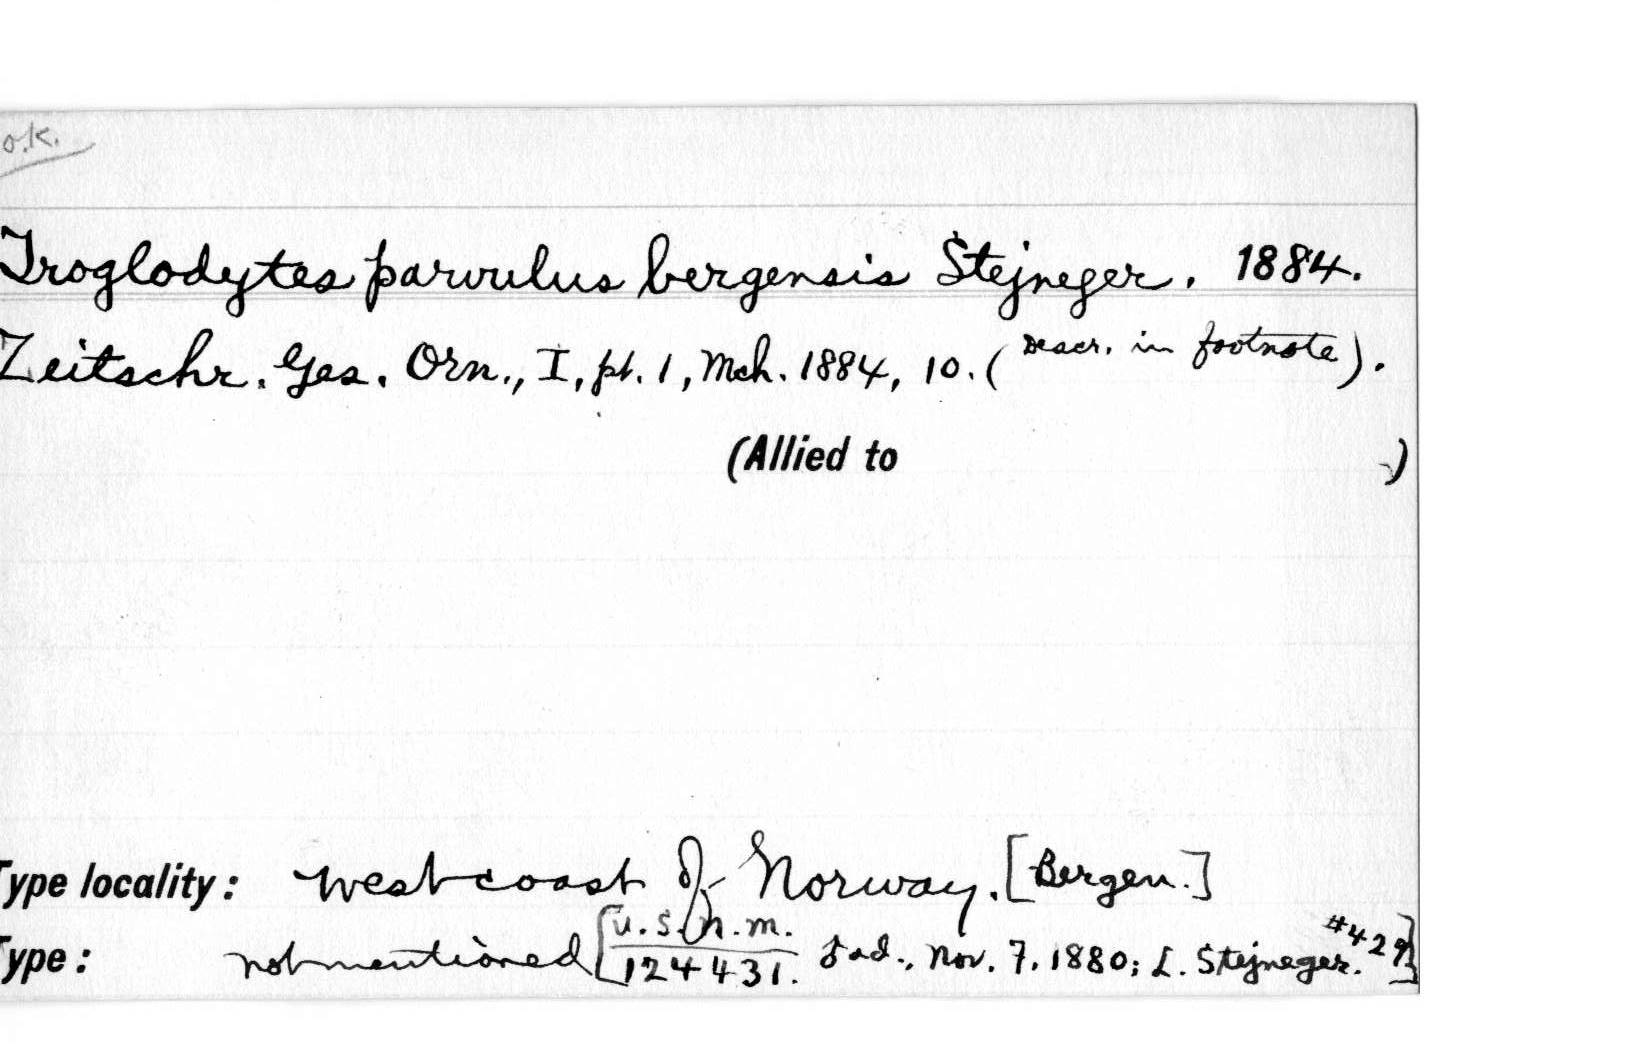 o.k.
Troglodytes parvulus bergensis Stejneger. 1884.
Zeitschr. Ges. Orn., I, pt. 1, Mch. 1884, 10. (Descr. in footnote).
(Allied to )
Type locality: West coast of Norway. [Bergen.]
Type: not mentioned [U.S.N.M. 124431. ad., Nov. 7, 1880; L. Stejneger. #429]